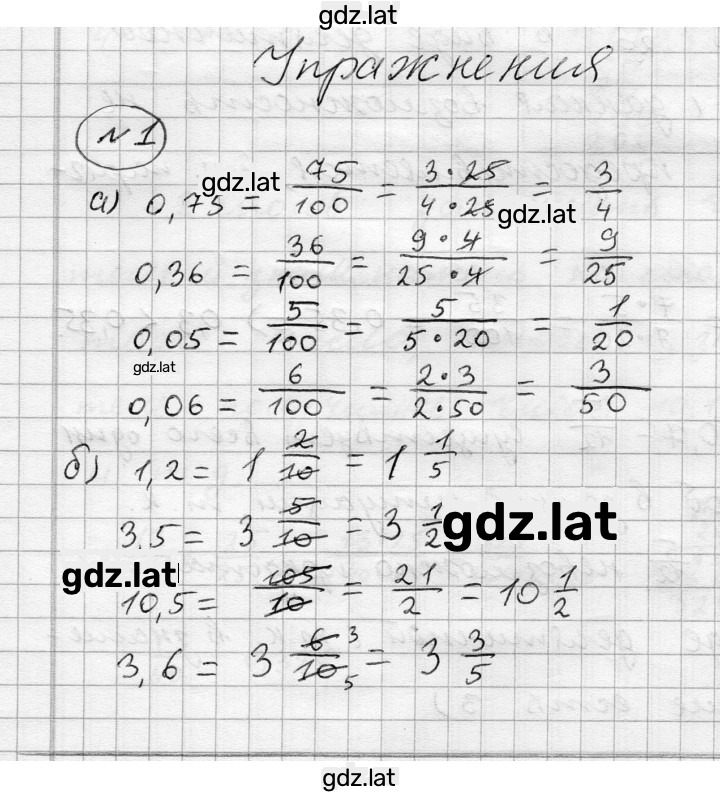 gdz.lat
Упражнения
№1
gdz.lat
а) 0,75 = 75/100 = 3·25/4·25 = 3/4
gdz.lat
0,36 = 36/100 = 9·4/25·4 = 9/25
0,05 = 5/100 = 5/5·20 = 1/20
gdz.lat
0,06 = 6/100 = 2·3/2·50 = 3/50
б) 1,2 = 1 2/10 = 1 1/5
3,5 = 3 5/10 = 3 1/2
gdz.lat
gdz.lat
10,5 = 105/10 = 21/2 = 10 1/2
3,6 = 3 6/10 3 5 = 3 3/5
gdz.lat